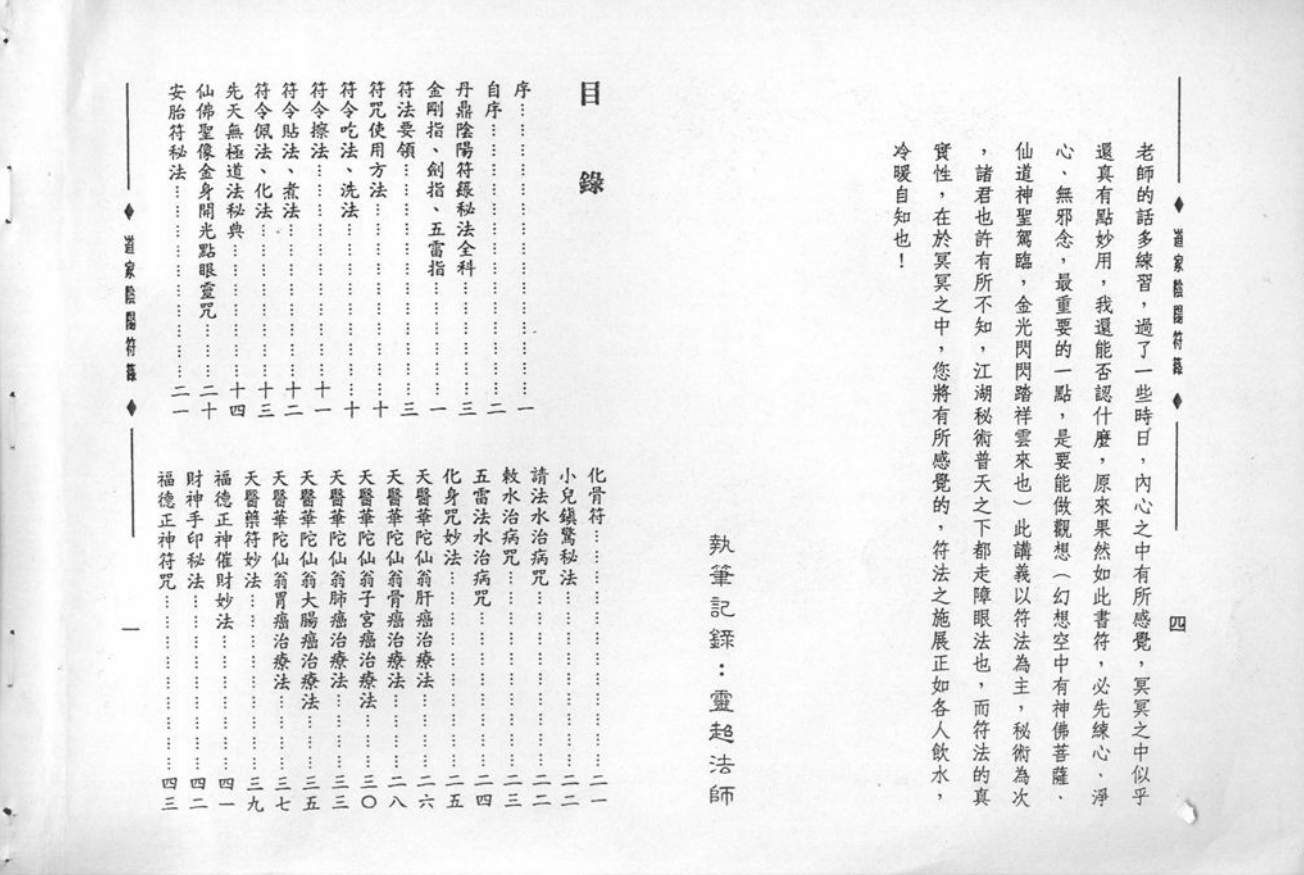 ◆ 道家陰陽符籙 ◆
四
老師的話多練習，過了一些時日，內心之中有所感覺，冥冥之中似乎
還真有點妙用，我還能否認什麼，原來果然如此書符，必先練心、淨
心、無邪念，最重要的一點，是要能做觀想（幻想空中有神佛菩薩、
仙道神聖駕臨，金光閃閃踏祥雲來也）此講義以符法為主，秘術為次
，諸君也許有所不知，江湖秘術普天之下都走障眼法也，而符法的真
實性，在於冥冥之中，您將有所感覺的，符法之施展正如各人飲水，
冷暖自知也！
執筆記錄：靈超法師
目錄
序……………………一
自序……………………二
丹鼎陰陽符籙秘法全科……………………三
金剛指、劍指、五雷指……………………一
符法要領……………………三
符咒使用方法……………………十
符令吃法、洗法……………………十
符令擦法……………………十一
符令貼法、煮法……………………十二
符令佩法、化法……………………十三
先天無極道法秘典……………………十四
仙佛聖像金身開光點眼靈咒……………………二十
安胎符秘法……………………二一
化骨符……………………二一
小兒鎮驚秘法……………………二二
請法水治病咒……………………二二
敕水治病咒……………………二三
五雷法水治病咒……………………二四
化身咒妙法……………………二五
天醫華陀仙翁肝癌治療法……………………二六
天醫華陀仙翁骨癌治療法……………………二八
天醫華陀仙翁子宮癌治療法……………………三〇
天醫華陀仙翁肺癌治療法……………………三三
天醫華陀仙翁大腸癌治療法……………………三五
天醫華陀仙翁胃癌治療法……………………三七
天醫藥符妙法……………………三九
福德正神催財妙法……………………四一
財神手印秘法……………………四二
福德正神符咒……………………四三
◆ 道家陰陽符籙 ◆
一